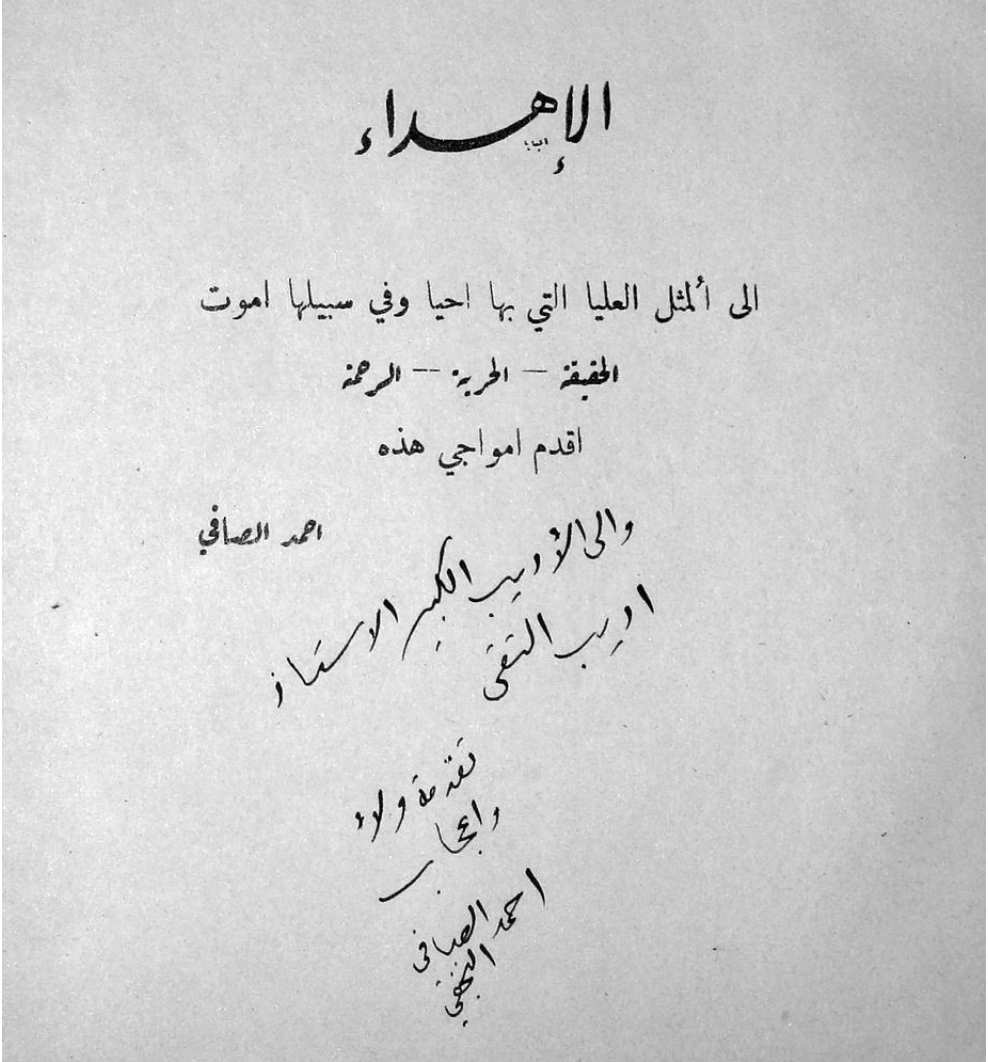 الإهداء
الى ألمثل العليا التي بها احيا وفي سبيلها اموت
الحقيقة – الحرية – الرحمة
اقدم امواجي هذه
احمد الصافي
والى الأديب الكبير الاستاذ
اديب التقي
تقدمة ولاء
واعجاب
احمد الصافي
النجفي